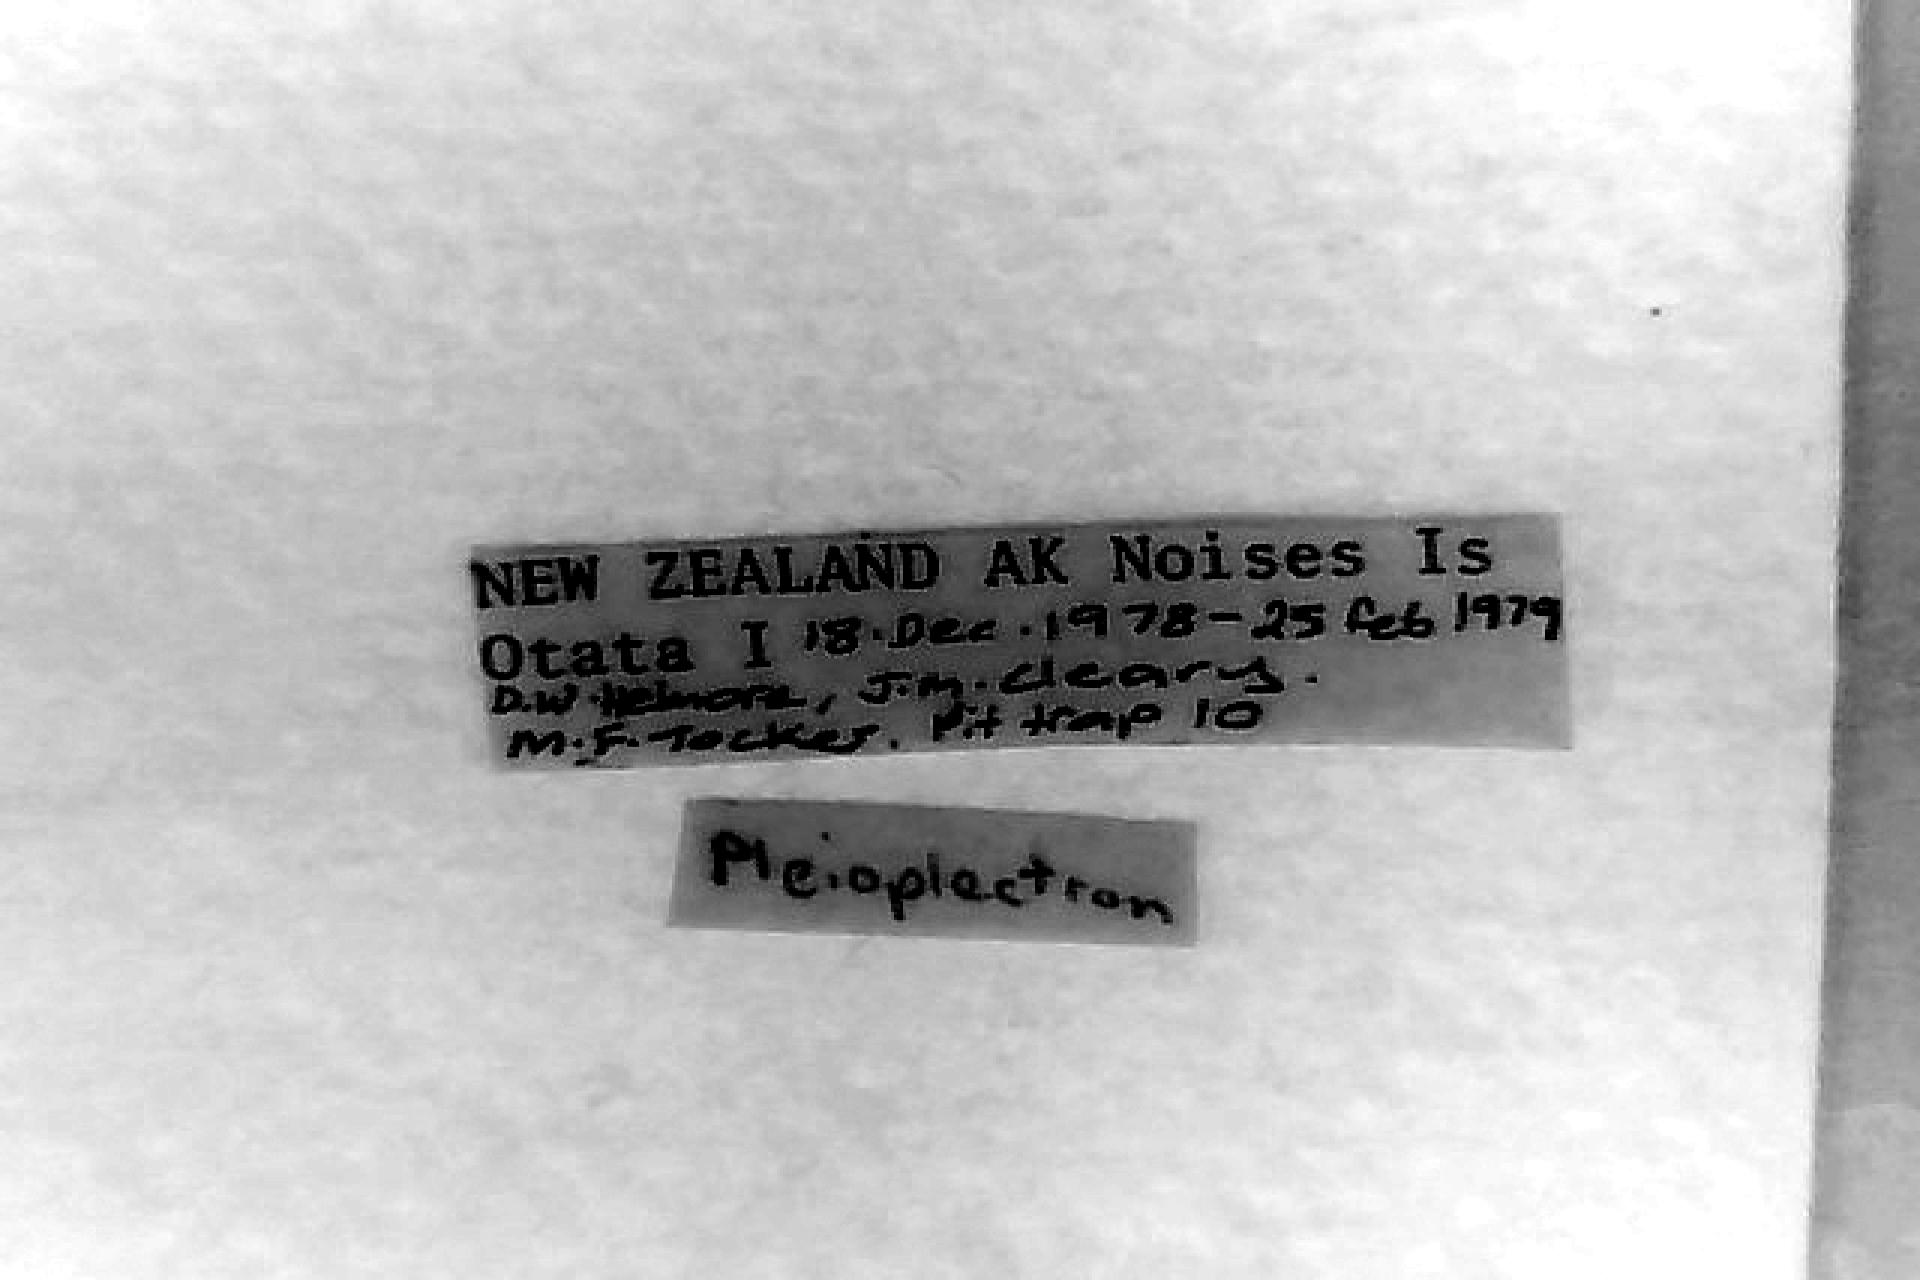 NEW ZEALAND AK Noises Is
Otata I 18.Dec.1978-25 Feb 1979
D.W. Helmore, J.M. Cleary.
M.F. Tocker. Pit trap 10
Pleioplectron